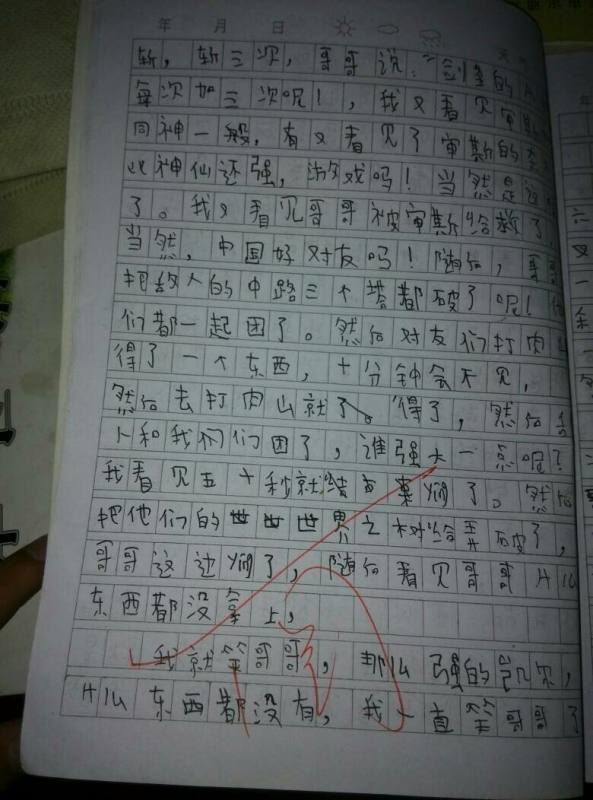 年 月 日
斩，斩三次，哥哥说：“剑圣的
每次加三次呢！，我又看见审
同神一般，有又看见了审斯的
比神仙还强，游戏吗！当然是
了。我又看见哥哥被审斯给
当然，中国好对友吗！随后，
把敌人的中路三个塔都破了呢！
们都一起团了。然后对友们打肉山
得了一个东西，十分钟会不见，
然后去打肉山就了。得了，然后
卜和我们们团了，谁强大一点呢？
我看见五十秒就结束了。然后
把他们的世世世界之树给弄破了，
哥哥这边了，随后看见哥哥什么
东西都没拿上，
我就笑哥哥，那么强的凯尔，
什么东西都没有，我一直笑哥哥了